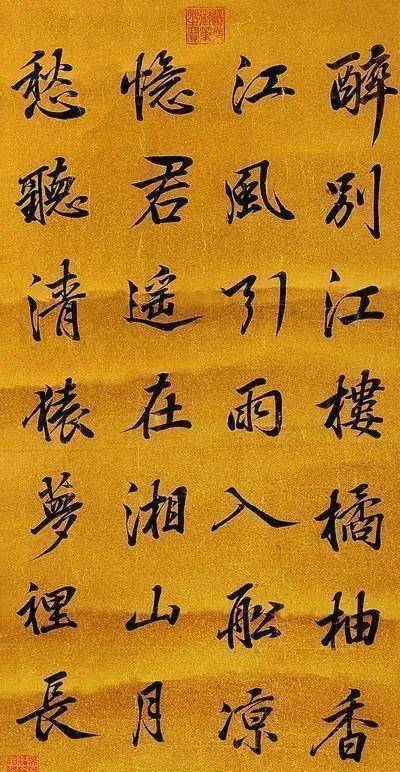 醉別江樓橘柚香
江風引雨入船凉
憶君遥在湘山月
愁聽清猿夢裡長